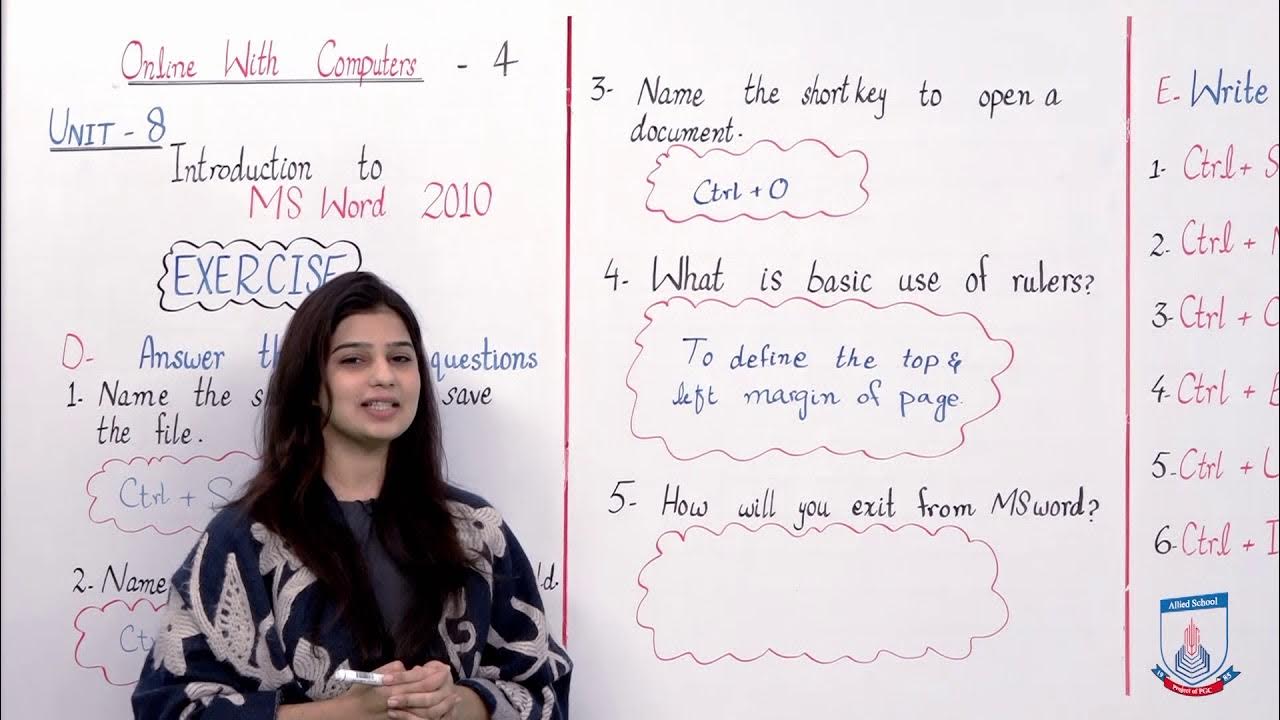 Online With Computers - 4
UNIT - 8
Introduction to
MS Word 2010
EXERCISE
D- Answer questions
1. Name the save
the file.
Ctrl + S
2. Name
3- Name the short key to open a
document.
Ctrl + O
4- What is basic use of rulers?
To define the top &
left margin of page.
5- How will you exit from MS word?
E- Write
1- Ctrl + S
2. Ctrl +
3- Ctrl +
4- Ctrl +
5- Ctrl +
6- Ctrl +
Allied School
Project of PGC
19 85